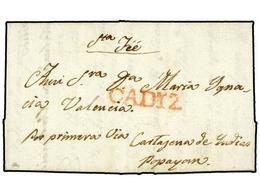 Sta Fée
A mi Sra Da Maria Igna
cia Valencia.
CADIZ
Por primera Via Cartagena de Indias
Popayan.